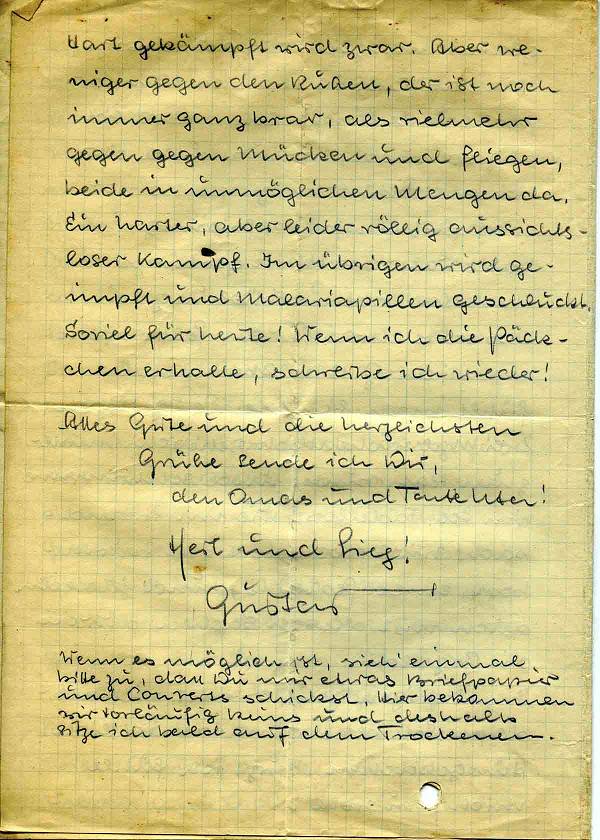 Hart gekämpft wird zwar. Aber we-
niger gegen den Ruhen, der ist noch
immer ganz brav, als vielmehr
gegen gegen Mücken und Fliegen,
beide in unmöglichen Mengen da.
Ein harter, aber leider völlig aussichts-
loser Kampf. Im übrigen wird ge-
impft und Malariapillen geschluckt.
Soviel für heute! Wenn ich die Päck-
chen erhalte, schreibe ich wieder!
Alles Gute und die herzlichsten
Grüße sende ich Dir,
den Omas und Tante
Heil und Sieg!
Gustav
Wenn es möglich ist, sieh' einmal
bitte zu, daß Du mir etwas Briefpapier
und Couverts schickst. Hier bekommen
wir vorläufig keins und deshalb
sitze ich bald auf dem Trockenen.